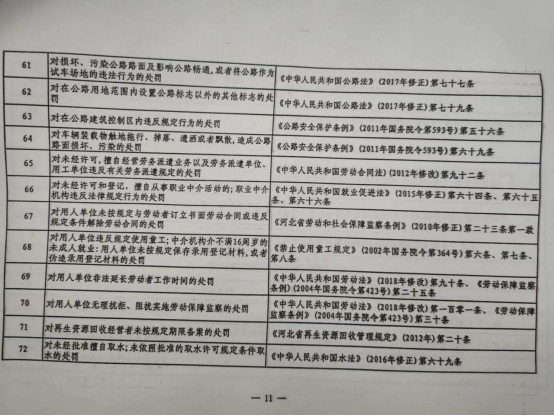 61
对损坏、污染公路路面及影响公路畅通,或者将公路作为
试车场地的违法行为的处罚
《中华人民共和国公路法》(2017年修正)第七十七条
62
对在公路用地范围内设置公路标志以外的其他标志的处
罚
《中华人民共和国公路法》(2017年修正)第七十九条
63
对在公路建筑控制区内违反规定行为的处罚
《公路安全保护条例》(2011年国务院令第593号)第五十六条
64
对车辆装载物触地拖行、掉落、遗洒或者飘散,造成公路
路面损坏、污染的处罚
《公路安全保护条例》(2011年国务院令593号)第六十九条
65
对未经许可,擅自经营劳务派遣业务以及劳务派遣单位、
用工单位违反有关劳务派遣规定的处罚
《中华人民共和国劳动合同法》(2012年修改)第九十二条
66
对未经许可和登记,擅自从事职业中介活动的;职业中介
机构违反法律规定行为的处罚
《中华人民共和国就业促进法》(2015年修正)第六十四条、第六十五
条、第六十六条
67
对用人单位未按规定与劳动者订立书面劳动合同或违反
规定条件解除劳动合同的处罚
《河北省劳动和社会保障监察条例》(2010年修正)第二十三条第一款
68
对用人单位违反规定使用童工;中介机构介不满16周岁的
未成人就业;用人单位未按规定保存录用登记材料,或者
伪造录用登记材料的处罚
《禁止使用童工规定》(2002年国务院令第364号)第六条、第七条、
第八条
69
对用人单位非法延长劳动者工作时间的处罚
《中华人民共和国劳动法》(2018年修改)第九十条、《劳动保障监察
条例》(2004年国务院令423号)第二十五条
70
对用人单位无理抗拒、阻挠实施劳动保障监察的处罚
《中华人民共和国劳动法》(2018年修改)第一百零一条、《劳动保障
监察条例》(2004年国务院令第423号)第三十条
71
对再生资源回收经营者未按规定期限备案的处罚
《河北省再生资源回收管理规定》(2012年)第二十条
72
对未经批准擅自取水;未依照批准的取水许可规定条件取
水的处罚
《中华人民共和国水法》(2016年修正)第六十九条
— 11 —